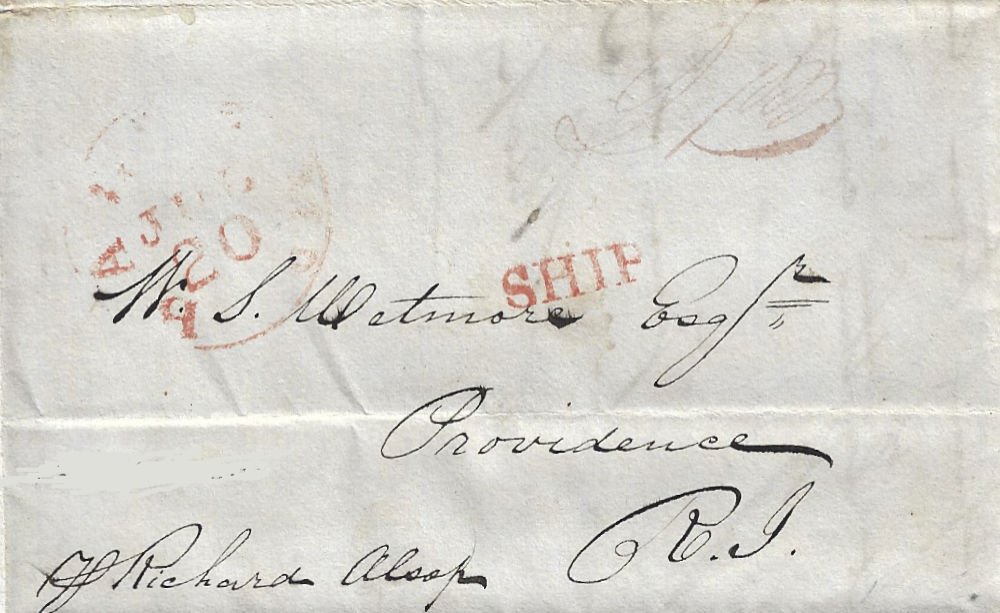 SHIP
20
W. S. Wetmore Esqr
Providence
R. I.
Richard Alsop